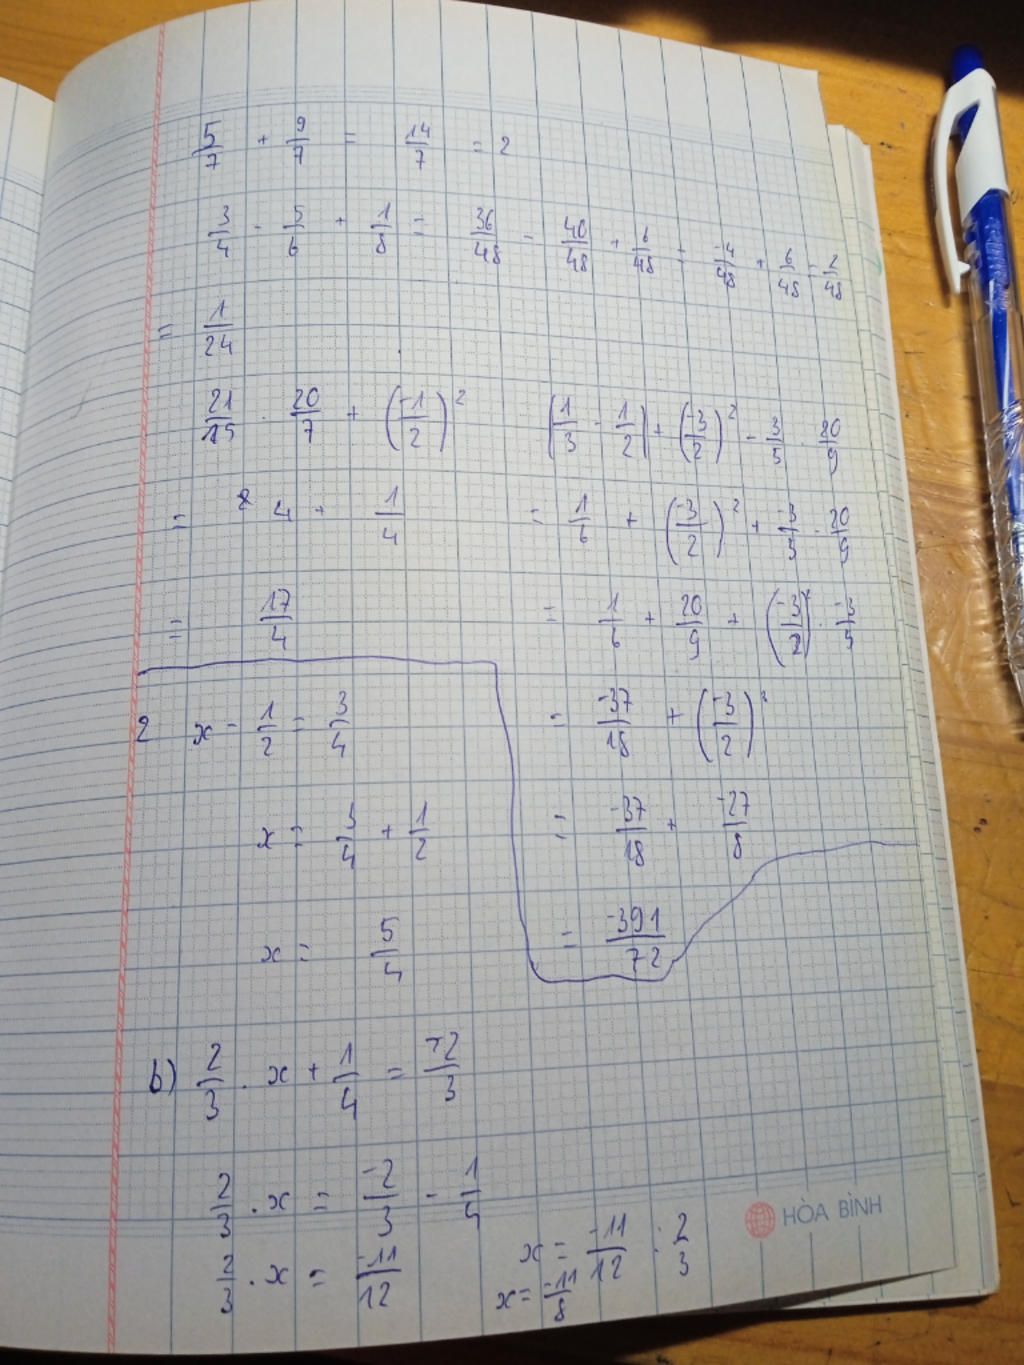 5/7 + 9/7 = 14/7 = 2
3/4 - 5/6 + 1/8 = 36/48 - 40/48 + 6/48 = -4/48 + 6/48 = 2/48
= 1/24
21/15 . 20/7 + (-1/2)²
= 4 + 1/4
= 17/4
|1/3 - 1/2| + (-3/2)² - 3/5 . 20/9
= 1/6 + (-3/2)² + -3/5 . 20/9
= 1/6 + 20/9 + (-3/2)² . -3/5
= -37/18 + (-3/2)³
= -37/18 + -27/8
= -391/72
2 x - 1/2 = 3/4
x = 3/4 + 1/2
x = 5/4
b) 2/3 . x + 1/4 = -2/3
2/3 . x = -2/3 - 1/4
2/3 . x = -11/12
x = -11/12 : 2/3
x = -11/8
HÒA BÌNH